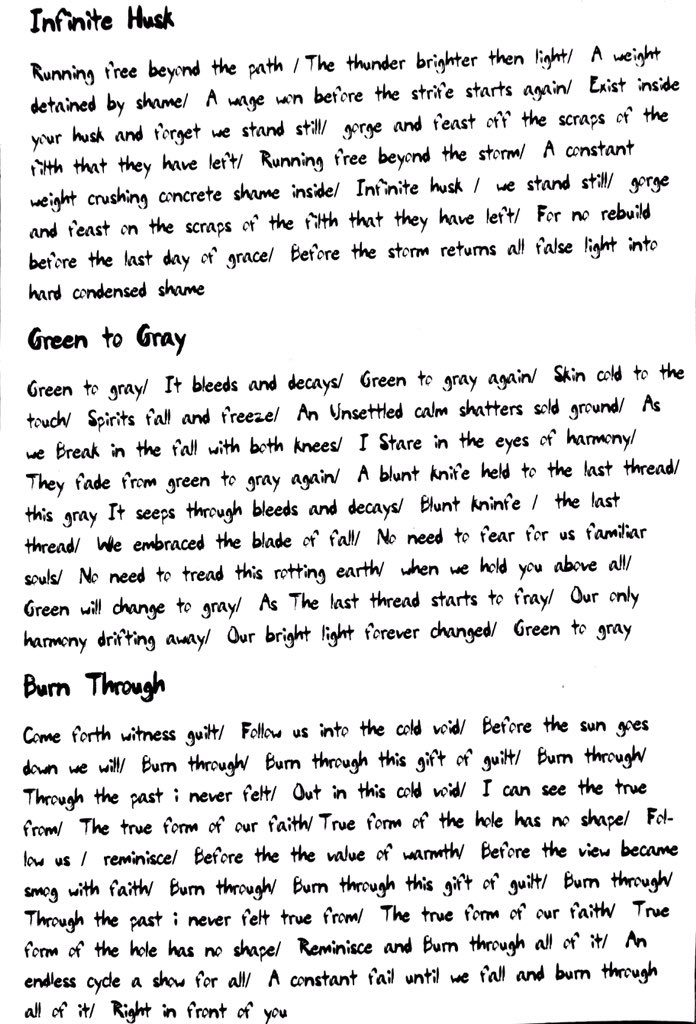 Infinite Husk
Running free beyond the path / The thunder brighter then light/ A weight
detained by shame/ A wage won before the strife starts again/ Exist inside
your husk and forget we stand still/ gorge and feast off the scraps of the
filth that they have left/ Running free beyond the storm/ A constant
weight crushing concrete shame inside/ Infinite husk / we stand still/ gorge
and feast on the scraps of the filth that they have left/ For no rebuild
before the last day of grace/ Before the storm returns all false light into
hard condensed shame
Green to Gray
Green to gray/ It bleeds and decays/ Green to gray again/ Skin cold to the
touch/ Spirits fall and freeze/ An Unsettled calm shatters sold ground/ As
we Break in the fall with both knees/ I Stare in the eyes of harmony/
They fade from green to gray again/ A blunt knife held to the last thread/
this gray It seeps through bleeds and decays/ Blunt kninfe / the last
thread/ We embraced the blade of fall/ No need to fear for us familiar
souls/ No need to tread this rotting earth/ when we hold you above all/
Green will change to gray/ As The last thread starts to fray/ Our only
harmony drifting away/ Our bright light forever changed/ Green to gray
Burn Through
Come forth witness guilt/ Follow us into the cold void/ Before the sun goes
down we will/ Burn through/ Burn through this gift of guilt/ Burn through/
Through the past i never felt/ Out in this cold void/ I can see the true
from/ The true form of our faith/ True form of the hole has no shape/ Fol-
low us / reminisce/ Before the the value of warmth/ Before the view became
smog with faith/ Burn through/ Burn through this gift of guilt/ Burn through/
Through the past i never felt true from/ The true form of our faith/ True
form of the hole has no shape/ Reminisce and Burn through all of it/ An
endless cycle a show for all/ A constant fail until we fall and burn through
all of it/ Right in front of you